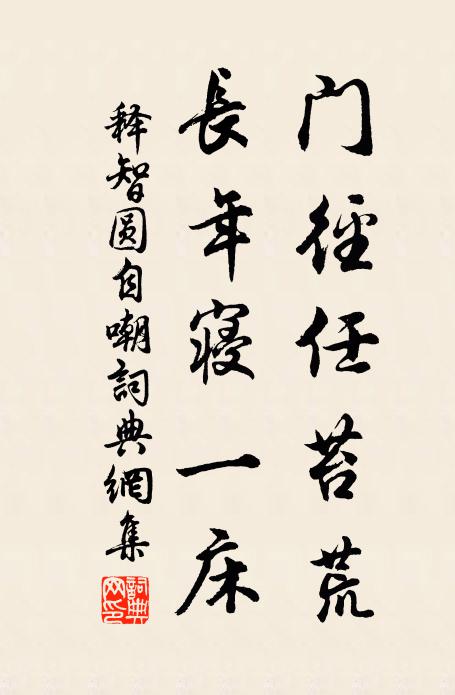 门徑任苔荒
長年寝一床
释智圆自嘲詞典網集
詞典网印